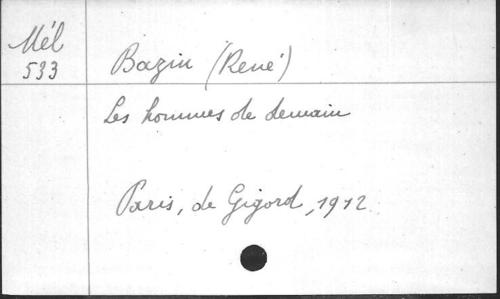 Mél
533
Bazin (René)
Les hommes de demain
Paris, de Gigord, 1912